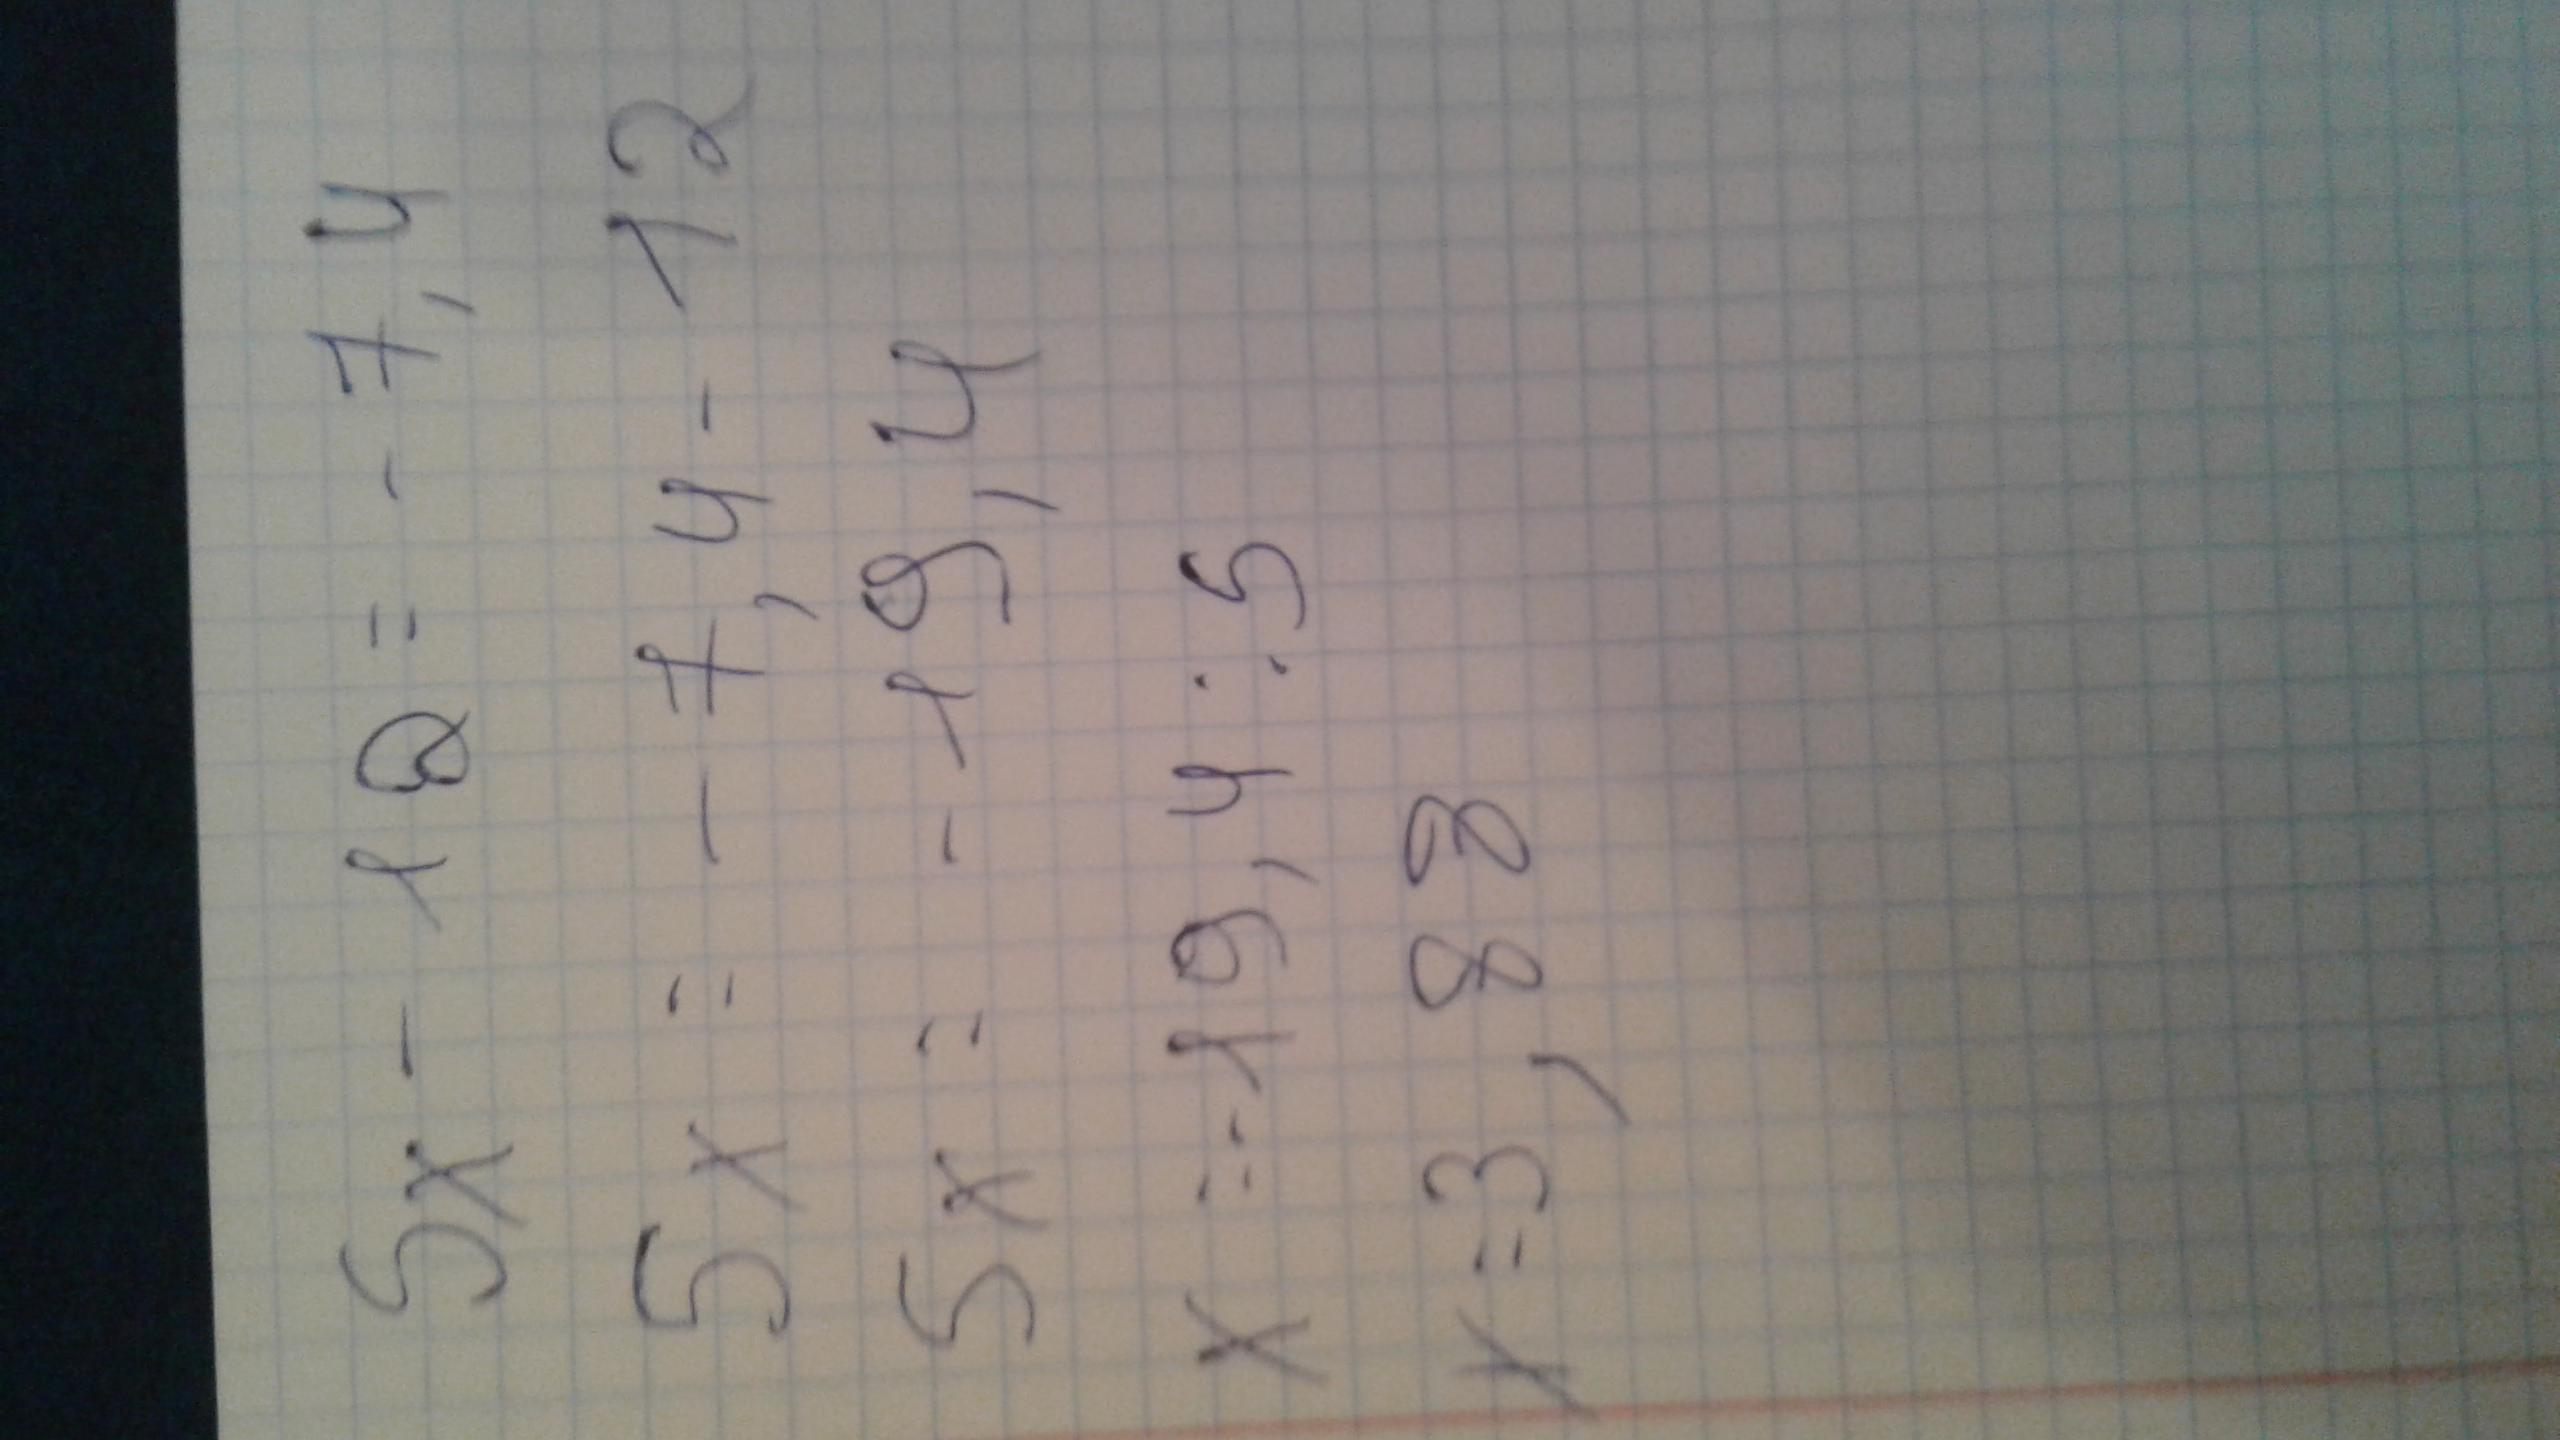 5x - 12 = - 7,4
5x = - 7,4 - 12
5x = - 19,4
x = - 19,4 : 5
x = 3,88